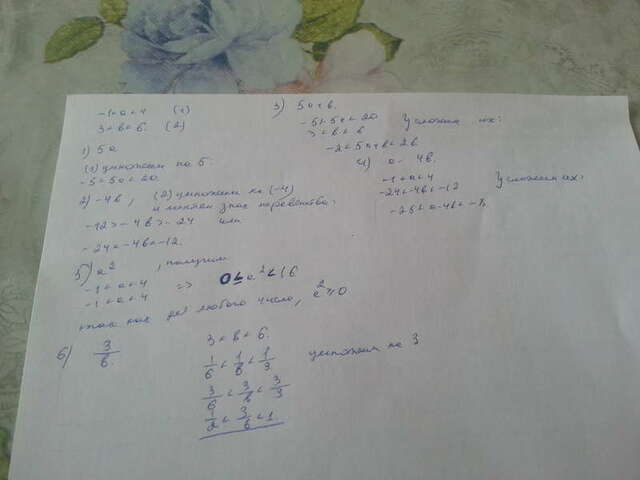 -1<a<4 (1)
3<b<6. (2)
1) 5a
(1) умножаем на 5:
-5<5a<20.
2) -4b, (2) умножаем на (-4)
и меняем знак неравенства:
-12>-4b>-24 или
-24<-4b<-12.
3) 5a+b.
-5<5a<20
3<b<6 Усложим их:
-2<5a+b<26
4) a-4b.
-1<a<4
-24<-4b<-12 Усложим их:
-25<a-4b<-8
5) a², получим
-1<a<4
-1<a<4 => 0≤a²<16
так как для любого числа, a²≥0
6) 3/b. 3<b<6.
1/6<1/b<1/3 умножаем на 3
3/6<3/b<3/3
1/2<3/b<1.